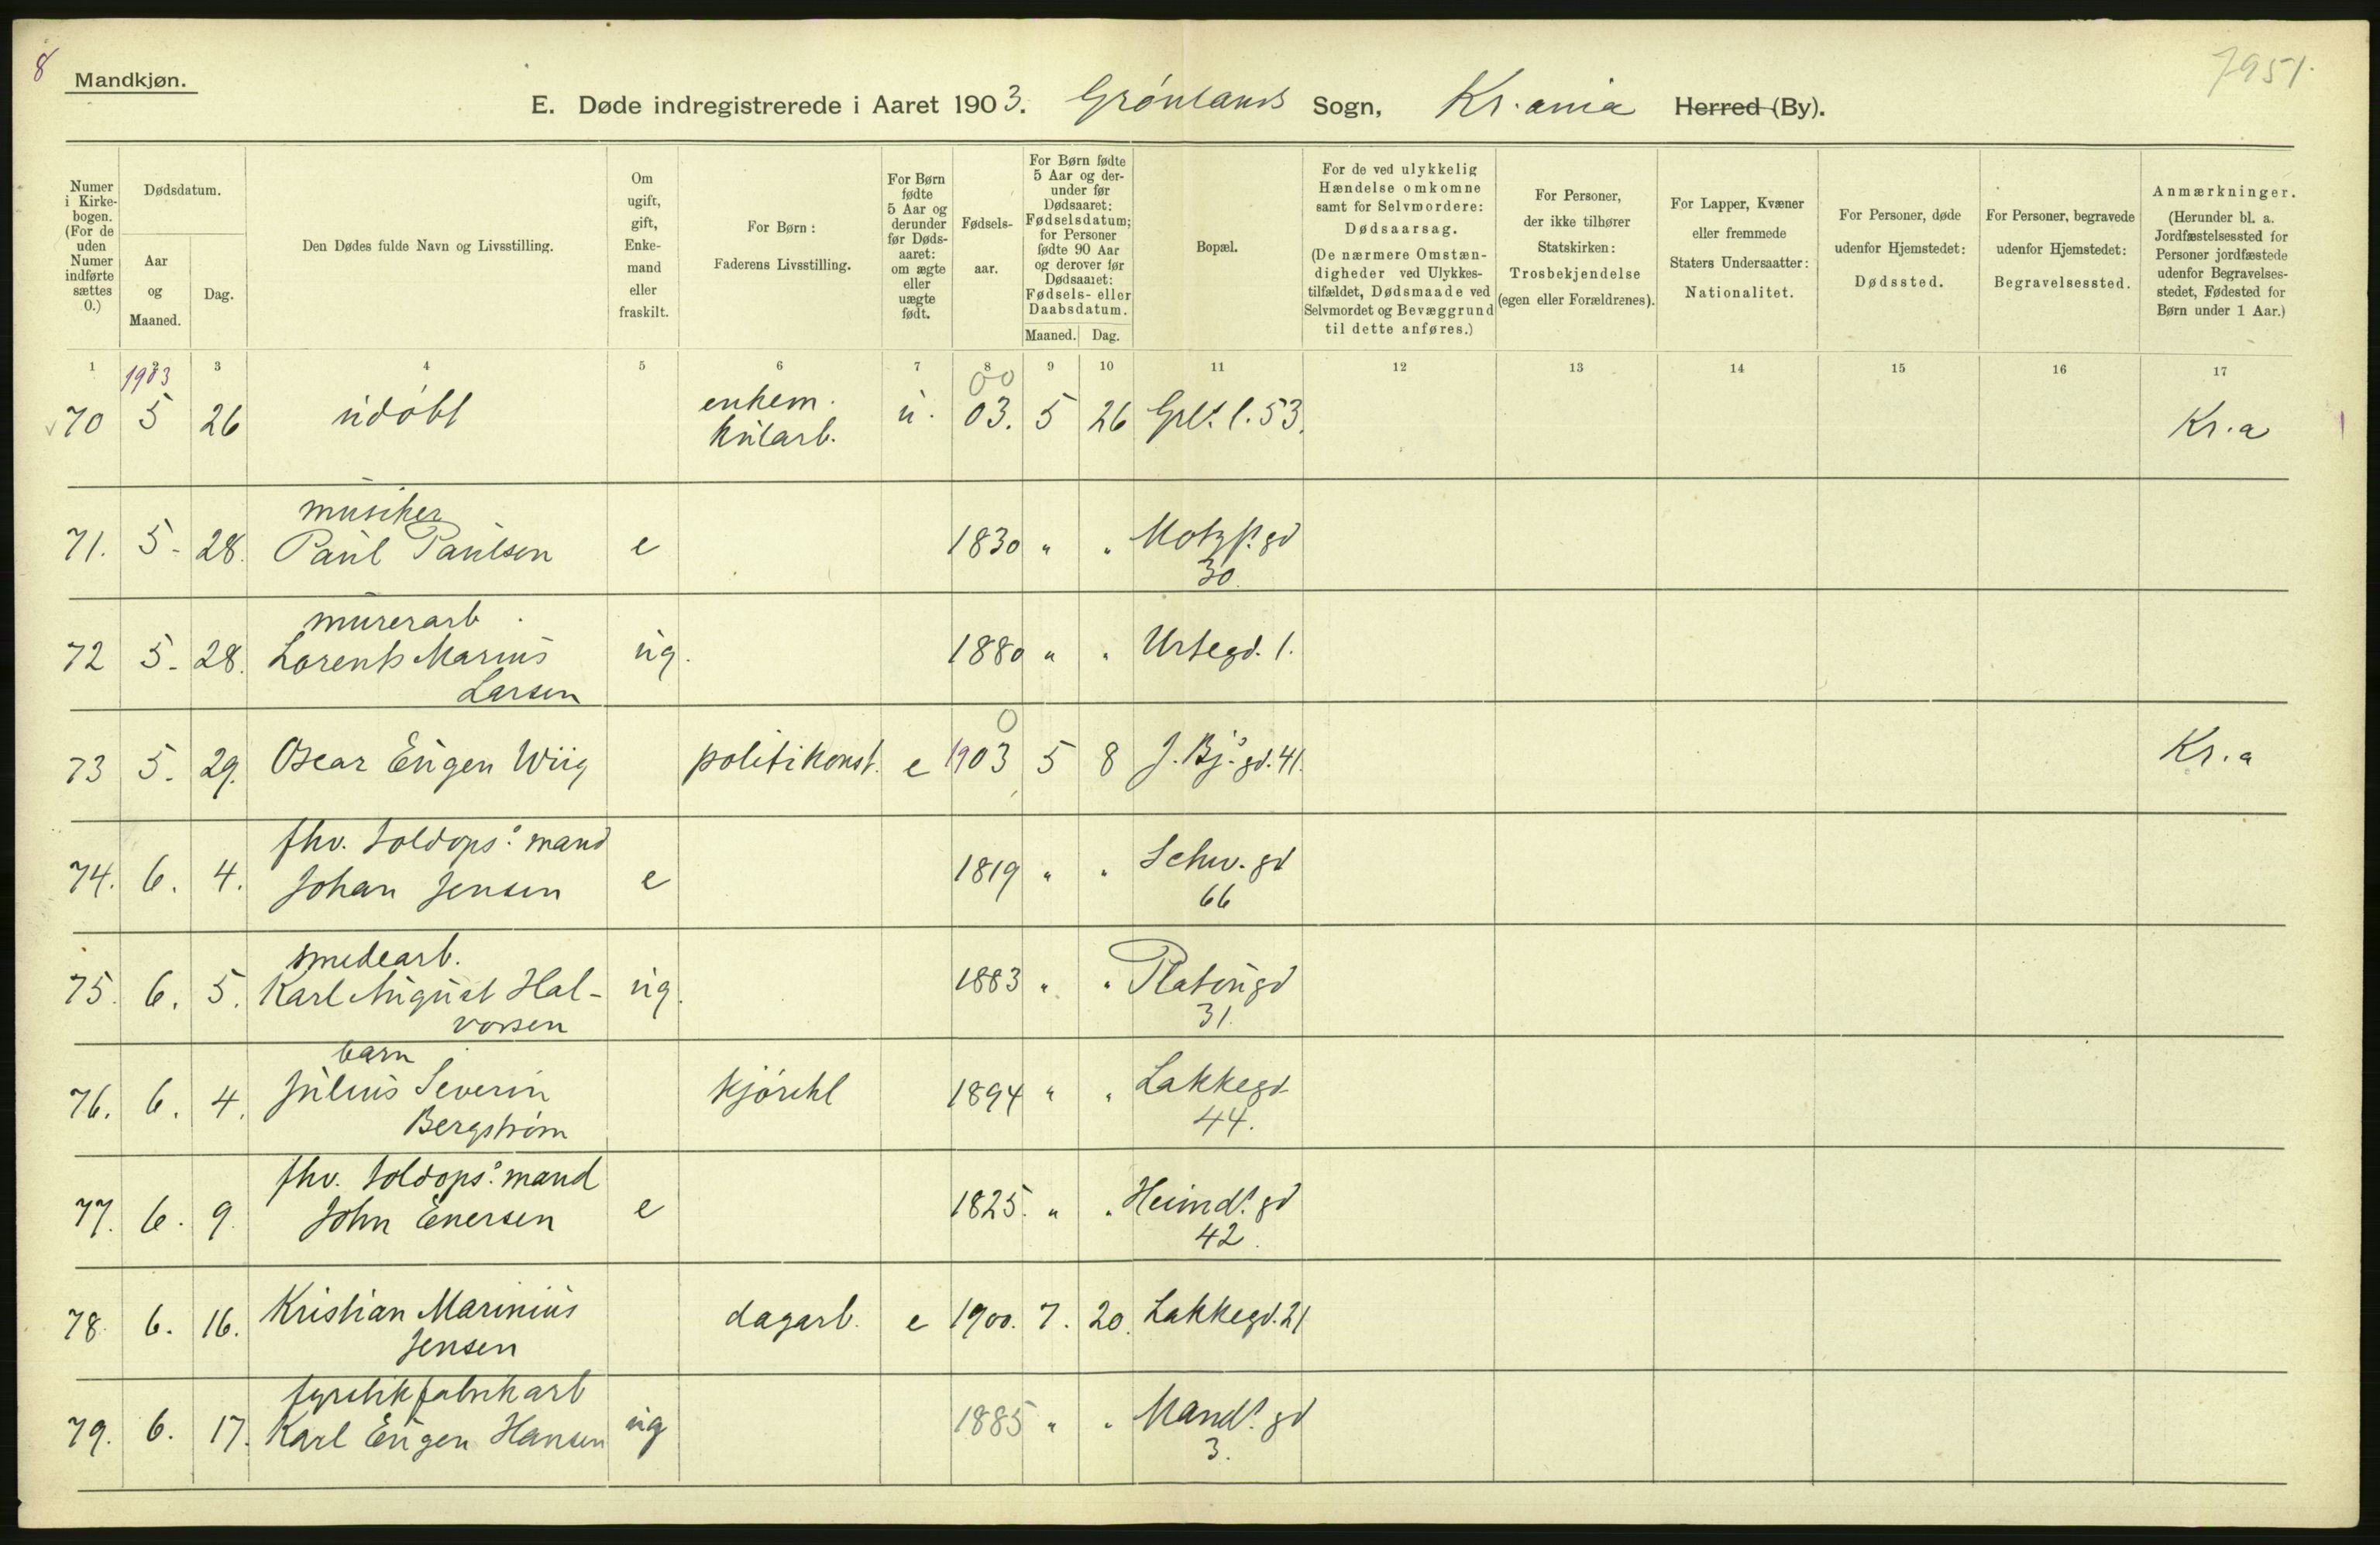 8
7951.
Mandkjøn.
E. Døde indregistrerede i Aaret 1903. Grønlands Sogn, Kr.ania Herred (By).
Numer i Kirkebogen. (For de uden Numer indførte sættes 0.)
Dødsdatum.
Aar og Maaned.
Dag.
Den Dødes fulde Navn og Livsstilling.
Om ugift, gift, Enkemand eller fraskilt.
For Børn: Faderens Livsstilling.
For Børn fødte 5 Aar og derunder før Dødsaaret: om ægte eller uægte født.
Fødselsaar.
For Børn fødte 5 Aar og derunder før Dødsaaret: Fødselsdatum; for Personer fødte 90 Aar og derover før Dødsaaret: Fødsels- eller Daabsdatum.
Maaned. Dag.
Bopæl.
For de ved ulykkelig Hændelse omkomne samt for Selvmordere: Dødsaarsag. (De nærmere Omstændigheder ved Ulykkestilfældet, Dødsmaade ved Selvmordet og Bevæggrund til dette anføres.)
For Personer, der ikke tilhører Statskirken: Trosbekjendelse (egen eller Forældrenes).
For Lapper, Kvæner eller fremmede Staters Undersaatter: Nationalitet.
For Personer, døde udenfor Hjemstedet: Dødssted.
For Personer, begravede udenfor Hjemstedet: Begravelsessted.
Anmærkninger. (Herunder bl. a. Jordfæstelsessted for Personer jordfæstede udenfor Begravelsesstedet, Fødested for Børn under 1 Aar.)
1 2 3 4 5 6 7 8 9 10 11 12 13 14 15 16 17
1903
70 5 26 udøbt enkem. kularb. u. 00 03. 5 26 Grl. l. 53. Kr.a
71. 5- 28. musiker Paul Paulsen e 1830 " " Motzf. gd 30.
72 5- 28. murerarb. Lorents Marius Larsen ug. 1880 " " Urtegd. 1.
73 5- 29. Oscar Eugen Wiig politikonst. e 0 1903 5 8 J. Bj.s gd. 41. Kr.a
74. 6. 4. fhv. toldops.mand Johan Jensen e 1819 " " Schw. gd 66
75. 6. 5. smedearb. Karl August Halvorsen ug. 1883 " " Platougd 31.
76. 6. 4. barn Julius Severin Bergstrøm kjørekl 1894 " " Lakkegd 44.
77. 6. 9. fhv. toldops.mand John Enersen e 1825. " " Heimd. gd 42.
78. 6. 16. Kristian Marinius Jensen dagarb. e 1900. 7. 20. Lakkegd. 21
79. 6. 17. fyrstikfabrikarb Karl Eugen Hansen ug 1885 " " Mand. gd 3.